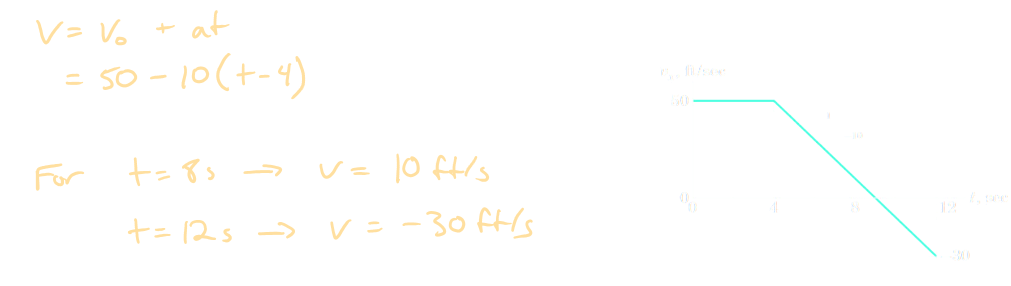 v = v₀ + at
= 50 - 10(t-4)
For t = 8s → v = 10 ft/s
t = 12s → v = -30 ft/s
50
0
0 4 8 12 t, sec